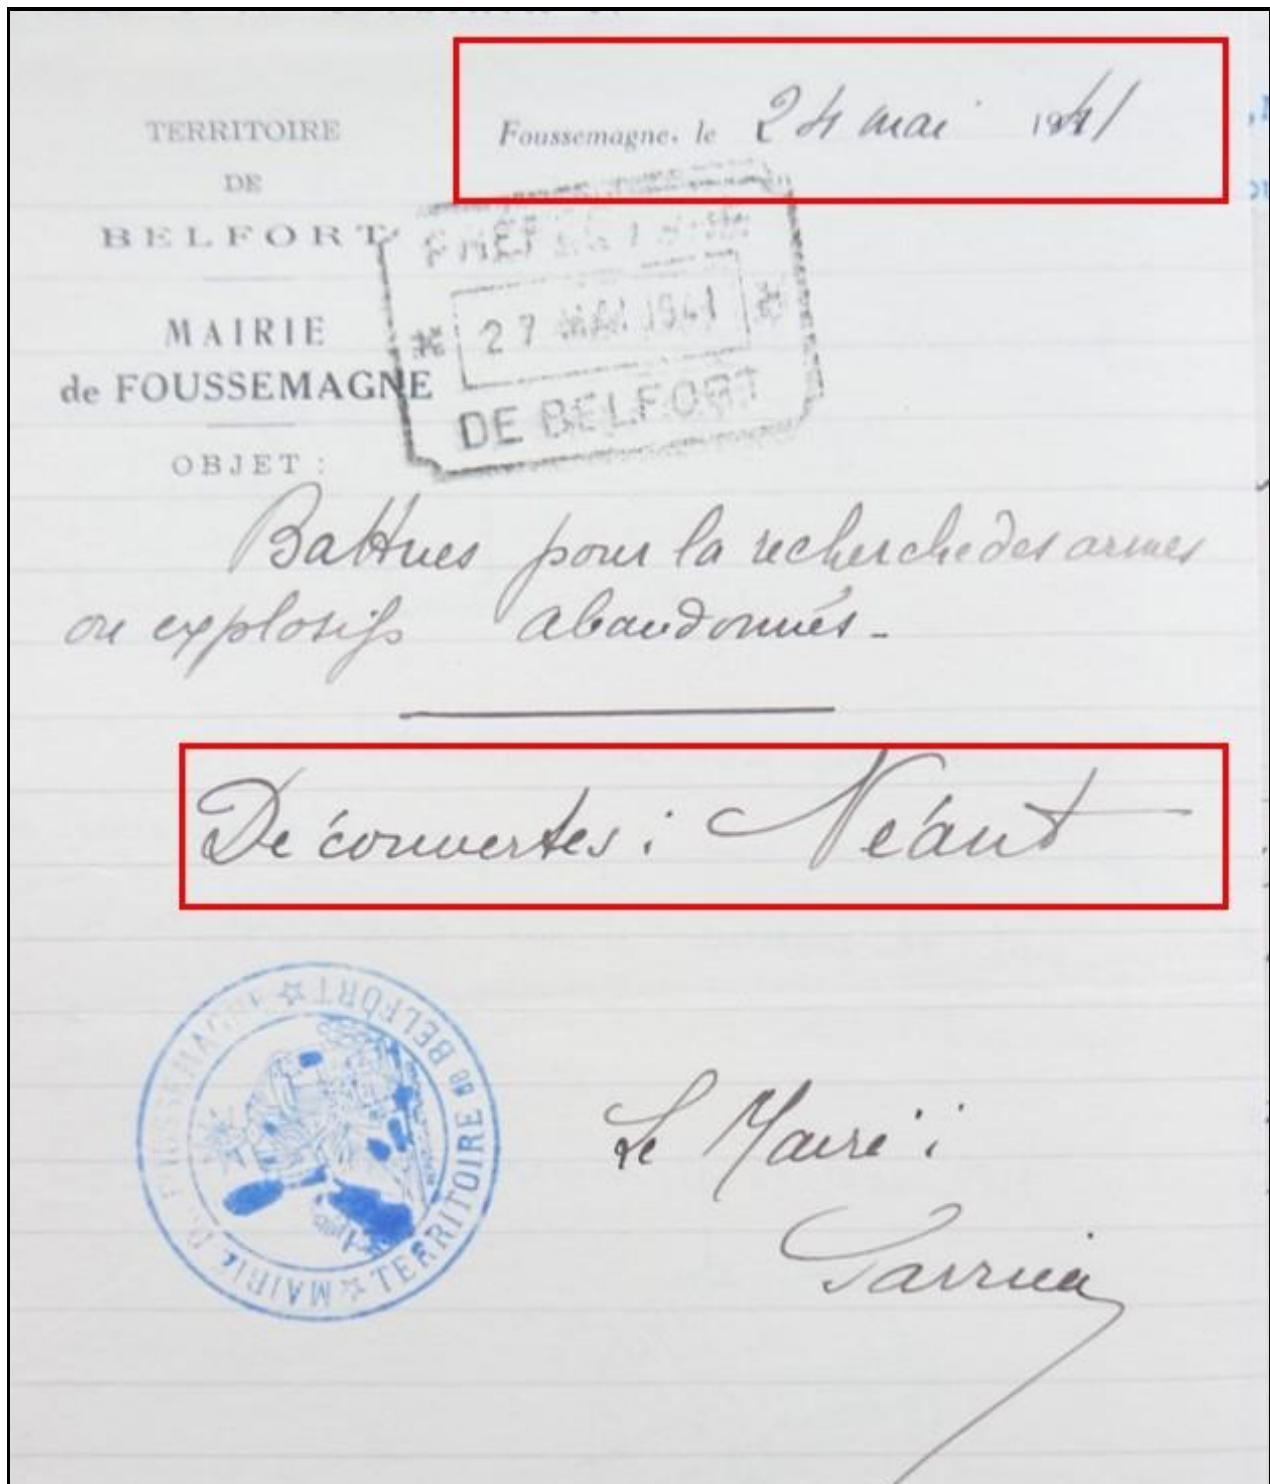 TERRITOIRE
DE
BELFORT
MAIRIE
de FOUSSEMAGNE
OBJET :
Foussemagne, le 24 mai 1941
PREFECTURE
27 MAI 1941
DE BELFORT
Battues pour la recherche des armes
ou explosifs abandonnés -
Découvertes : Néant
MAIRIE DE FOUSSEMAGNE ☆ TERRITOIRE DE BELFORT ☆
Le Maire :